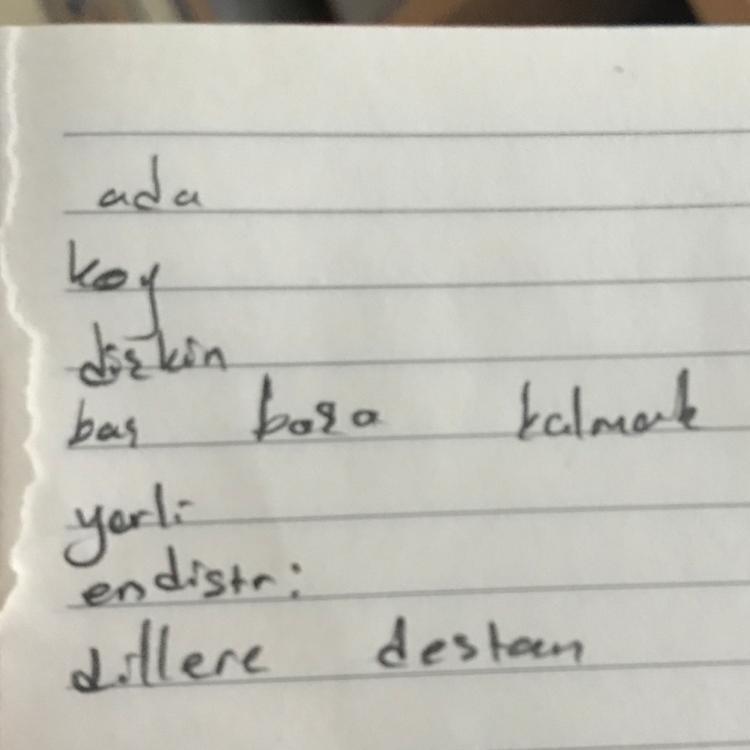 ada
koy
dışkın
baş başa kalmak
yerli
endistri
dillere destan